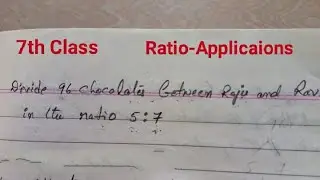 7th Class Ratio-Applicaions
Divide 96 chocolates between Raju and Rav
in the ratio 5:7